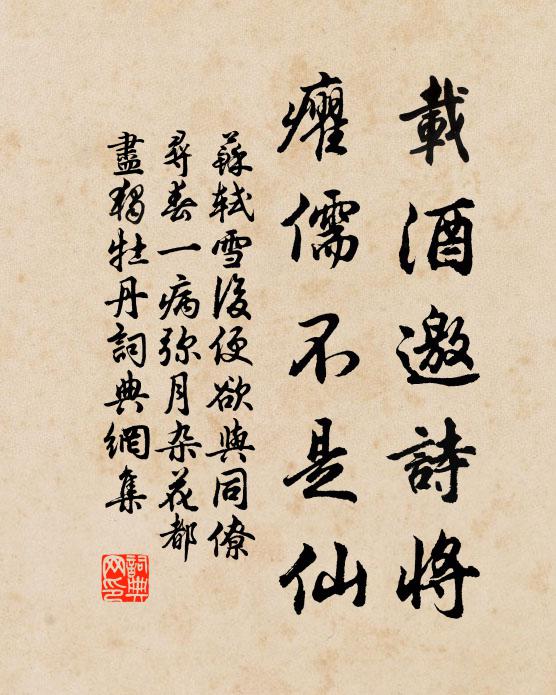 載酒邀詩將
癯儒不是仙
蘇軾雪後便欲與同僚
尋春一病彌月杂花都
盡獨牡丹詞典網集
詞典
网印